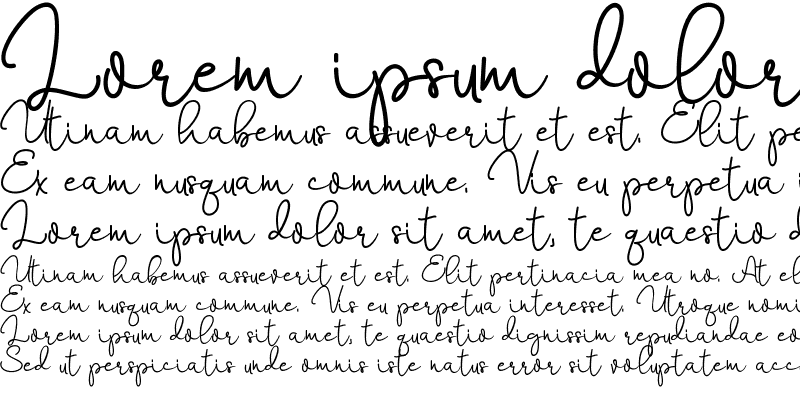 Lorem ipsum dolor
Utinam habemus assueverit et est. Elit pe
Ex eam nusquam commune. Vis eu perpetua i
Lorem ipsum dolor sit amet, te quaestio d
Utinam habemus assueverit et est. Elit pertinacia mea no. At el
Ex eam nusquam commune. Vis eu perpetua interesset. Utroque nomi
Lorem ipsum dolor sit amet, te quaestio dignissim repudiandae eo
Sed ut perspiciatis unde omnis iste natus error sit voluptatem acc